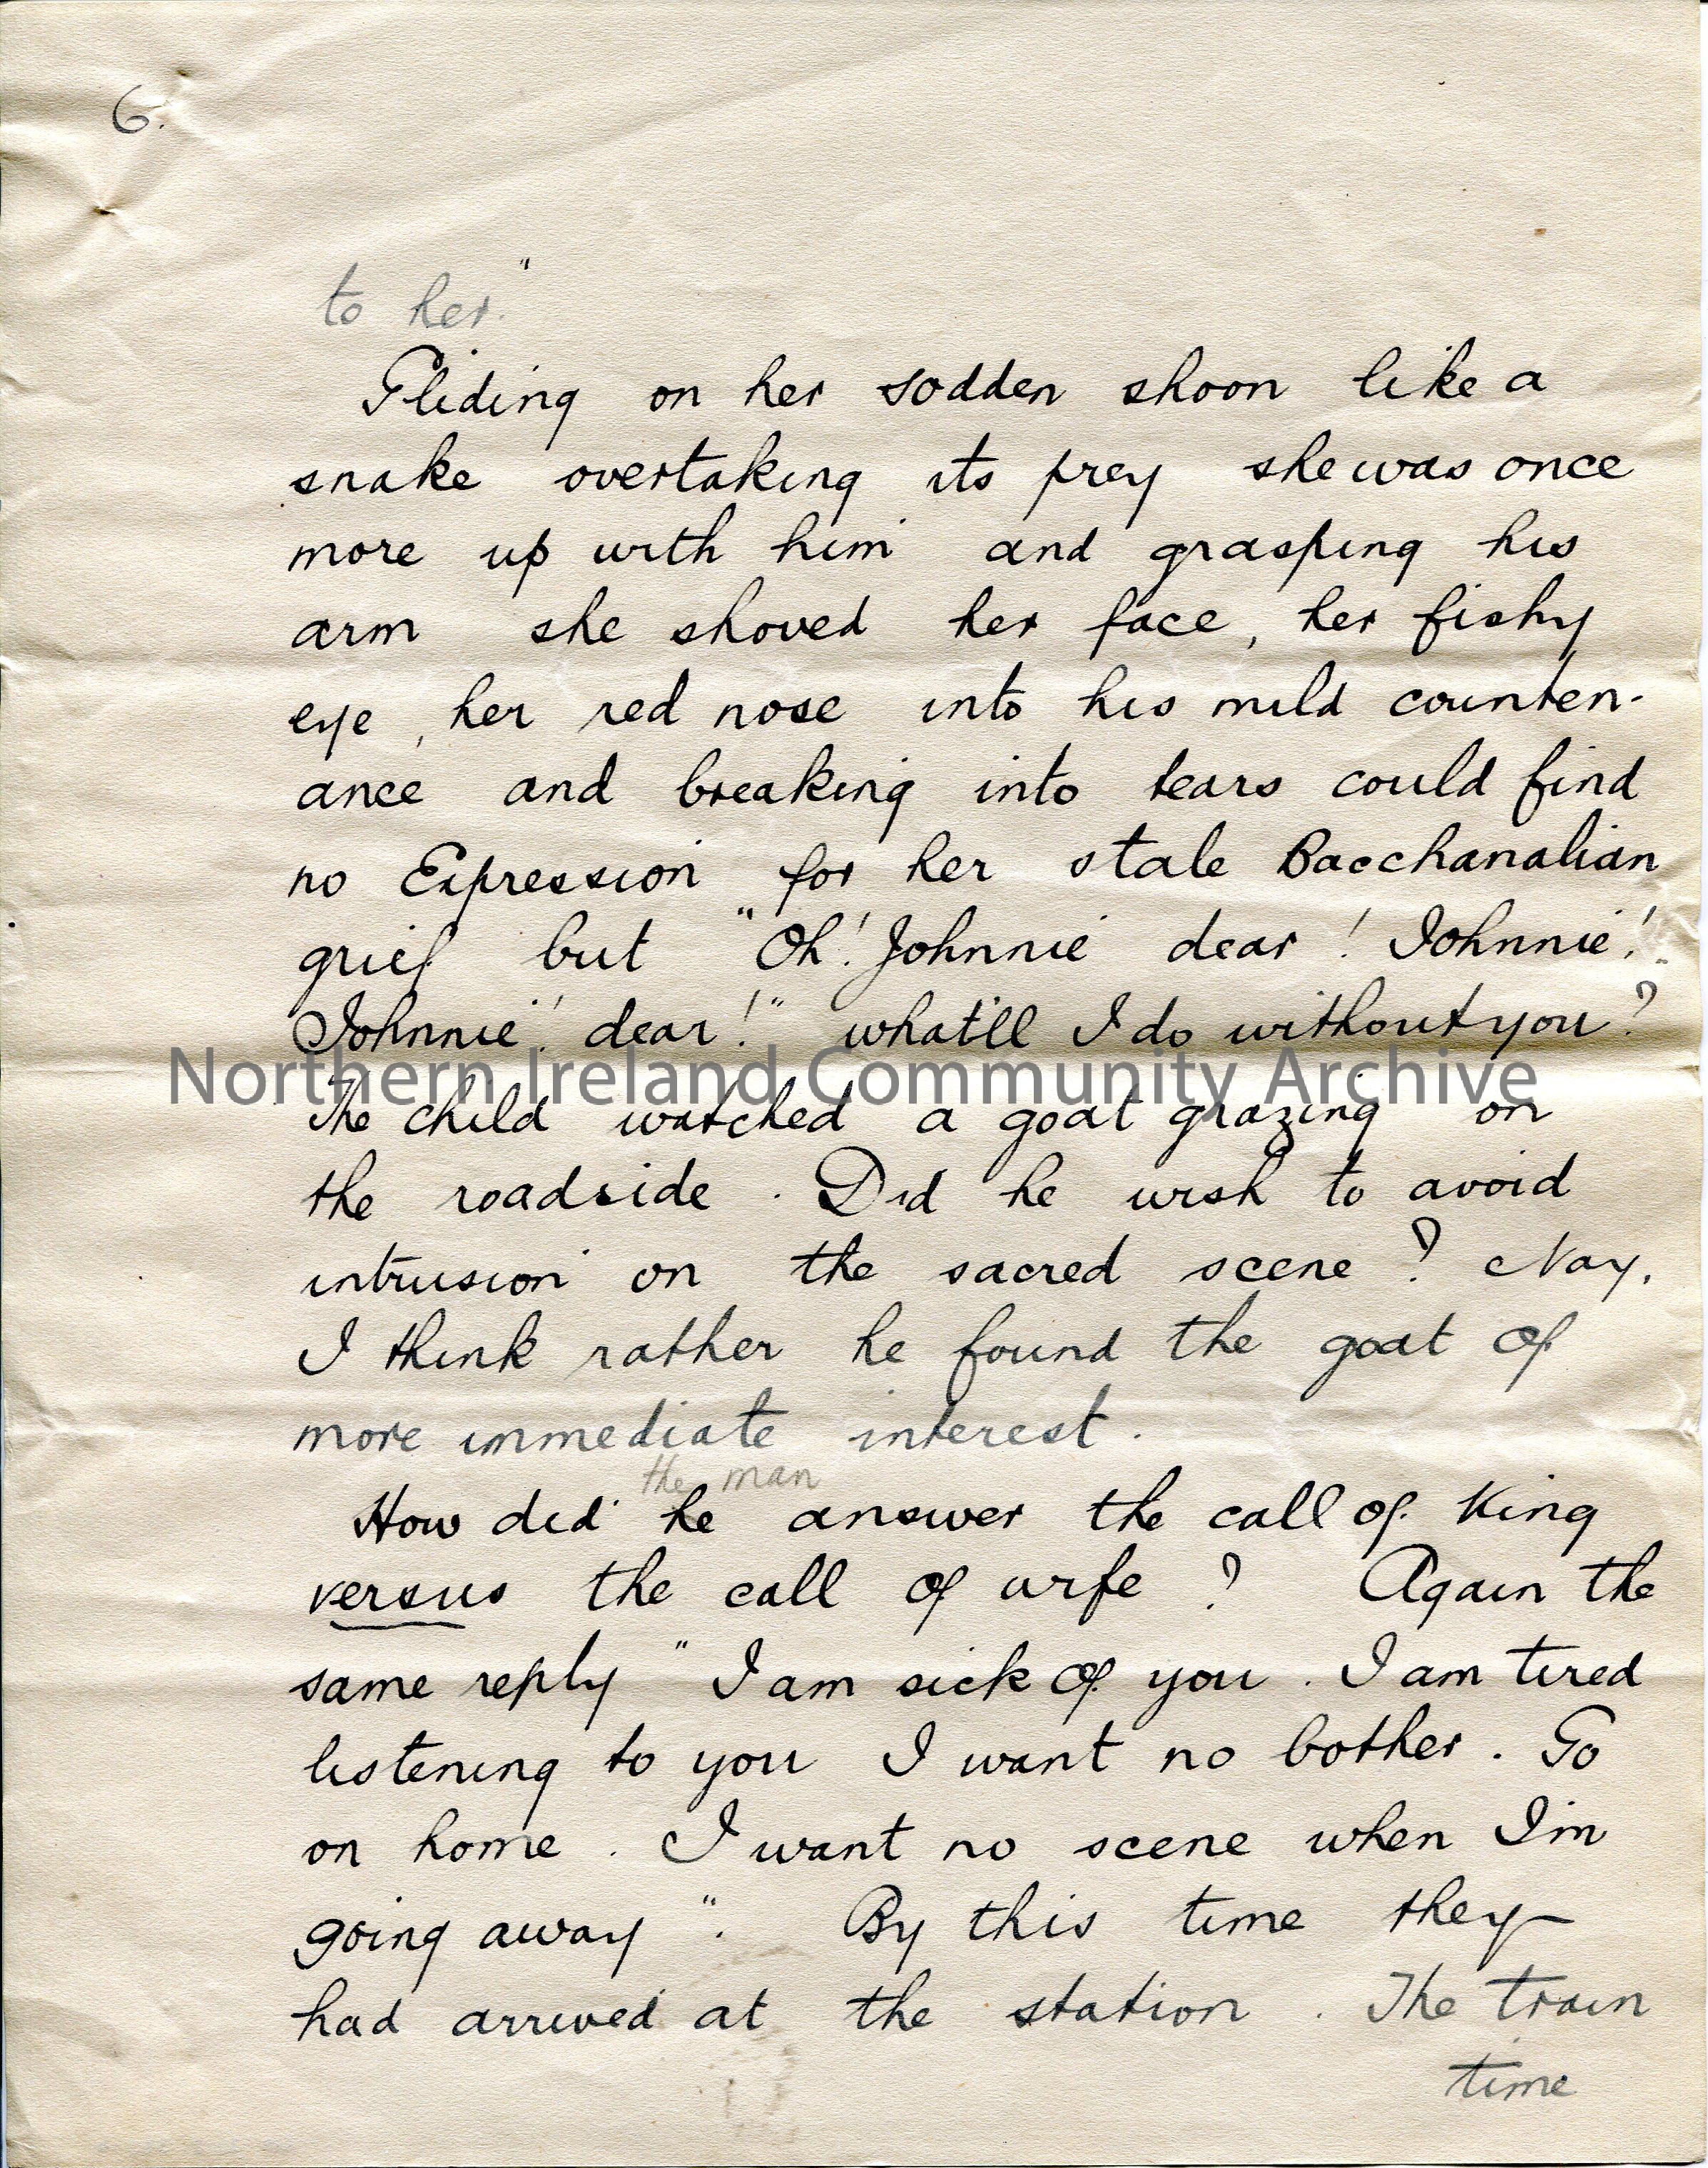 6.
to her."
Gliding on her sodden shoon like a
snake overtaking its prey she was once
more up with him and grasping his
arm she shoved her face, her fishy
eye, her red nose into his mild counten-
ance and breaking into tears could find
no Expression for her stale Bacchanalian
grief but "Oh! Johnnie dear! Johnnie!
Johnnie! dear!" what'll I do without you?
Northern Ireland Community Archive
The child watched a goat grazing on
the roadside. Did he wish to avoid
intrusion on the sacred scene? Nay,
I think rather he found the goat of
more immediate interest.
the man
How did he answer the call of King
versus the call of wife? Again the
same reply "I am sick of you. I am tired
listening to you I want no bother. Go
on home. I want no scene when I'm
going away". By this time they
had arrived at the station. The train
time